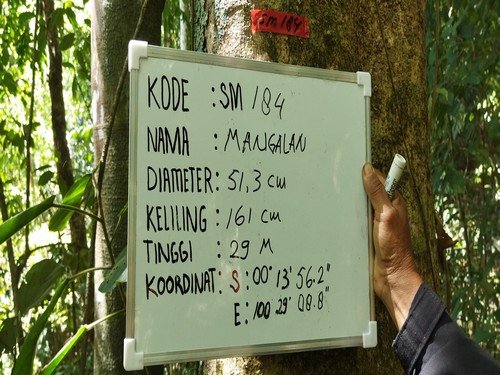 SM 184
KODE : SM 184
NAMA : MANGALAN
DIAMETER : 51,3 cm
KELILING : 161 cm
TINGGI : 29 M
KOORDINAT : S : 00° 13' 56.2"
E : 100° 29' 08.8"